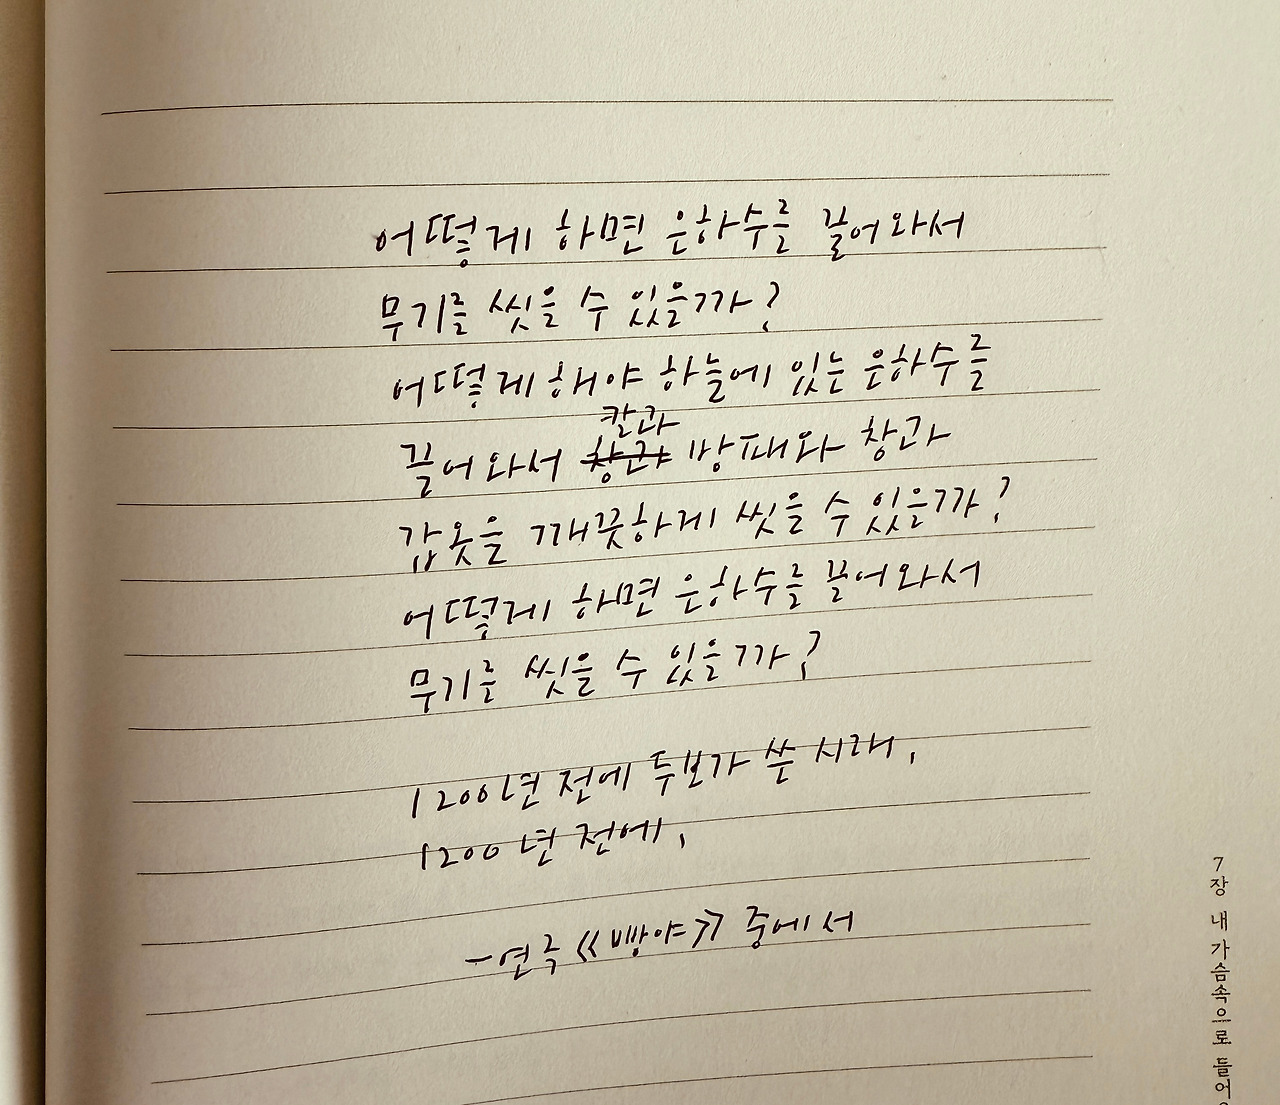 어떻게 하면 은하수를 끌어와서
무기를 씻을 수 있을까?
어떻게 해야 하늘에 있는 은하수를
칼과
끌어와서 창과 방패와 창과
갑옷을 깨끗하게 씻을 수 있을까?
어떻게 하면 은하수를 끌어와서
무기를 씻을 수 있을까?
1200년 전에 두보가 쓴 시래,
1200년 전에,
-연극 《빵야》 중에서
7장 내 가슴속으로 들어